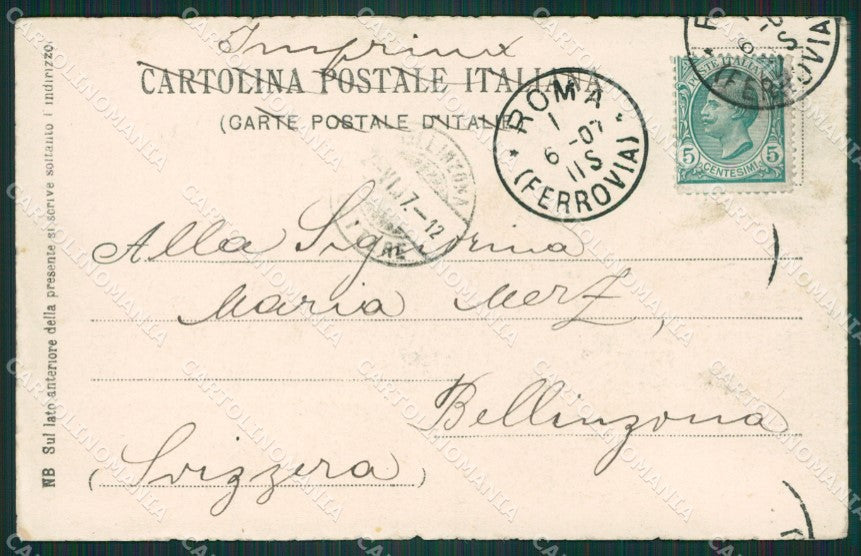 Imprimé
CARTOLINA POSTALE ITALIANA
(CARTE POSTALE D'ITALIE)
ROMA
1
6-07
11S
(FERROVIA)
(FERROVIA)
POSTE ITALIANE
5 5
CENTESIMI
BELLINZONA
VI.07.-12
Alla Signorina
Maria Merz,
Bellinzona
(Svizzera)
NB Sul lato anteriore della presente si scrive soltanto l'indirizzo.
CARTOLINOMANIA